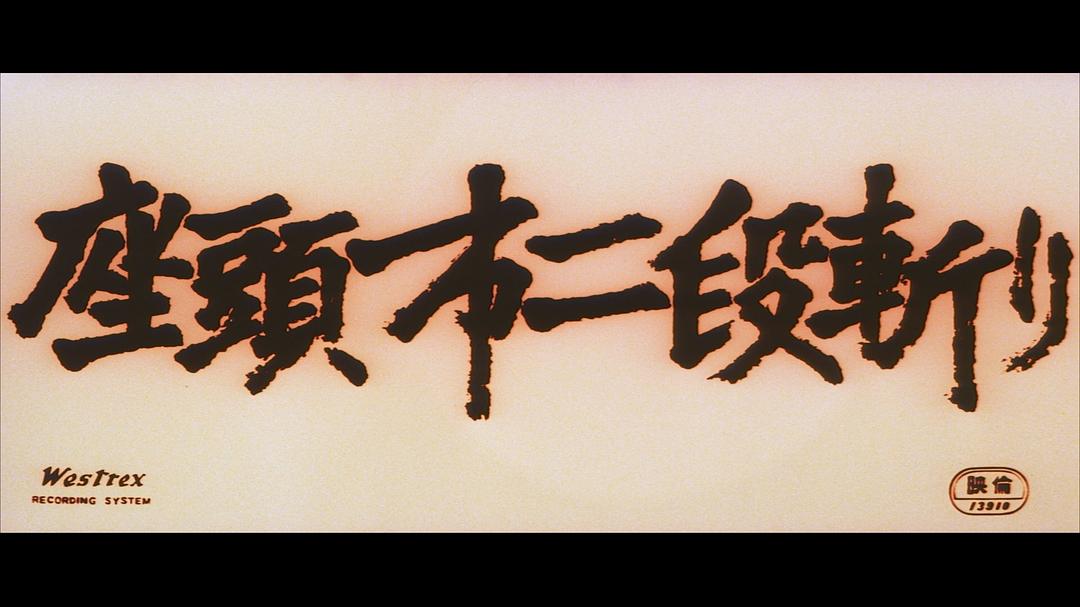 座頭市二段斬り
Westrex
RECORDING SYSTEM
映倫
13910